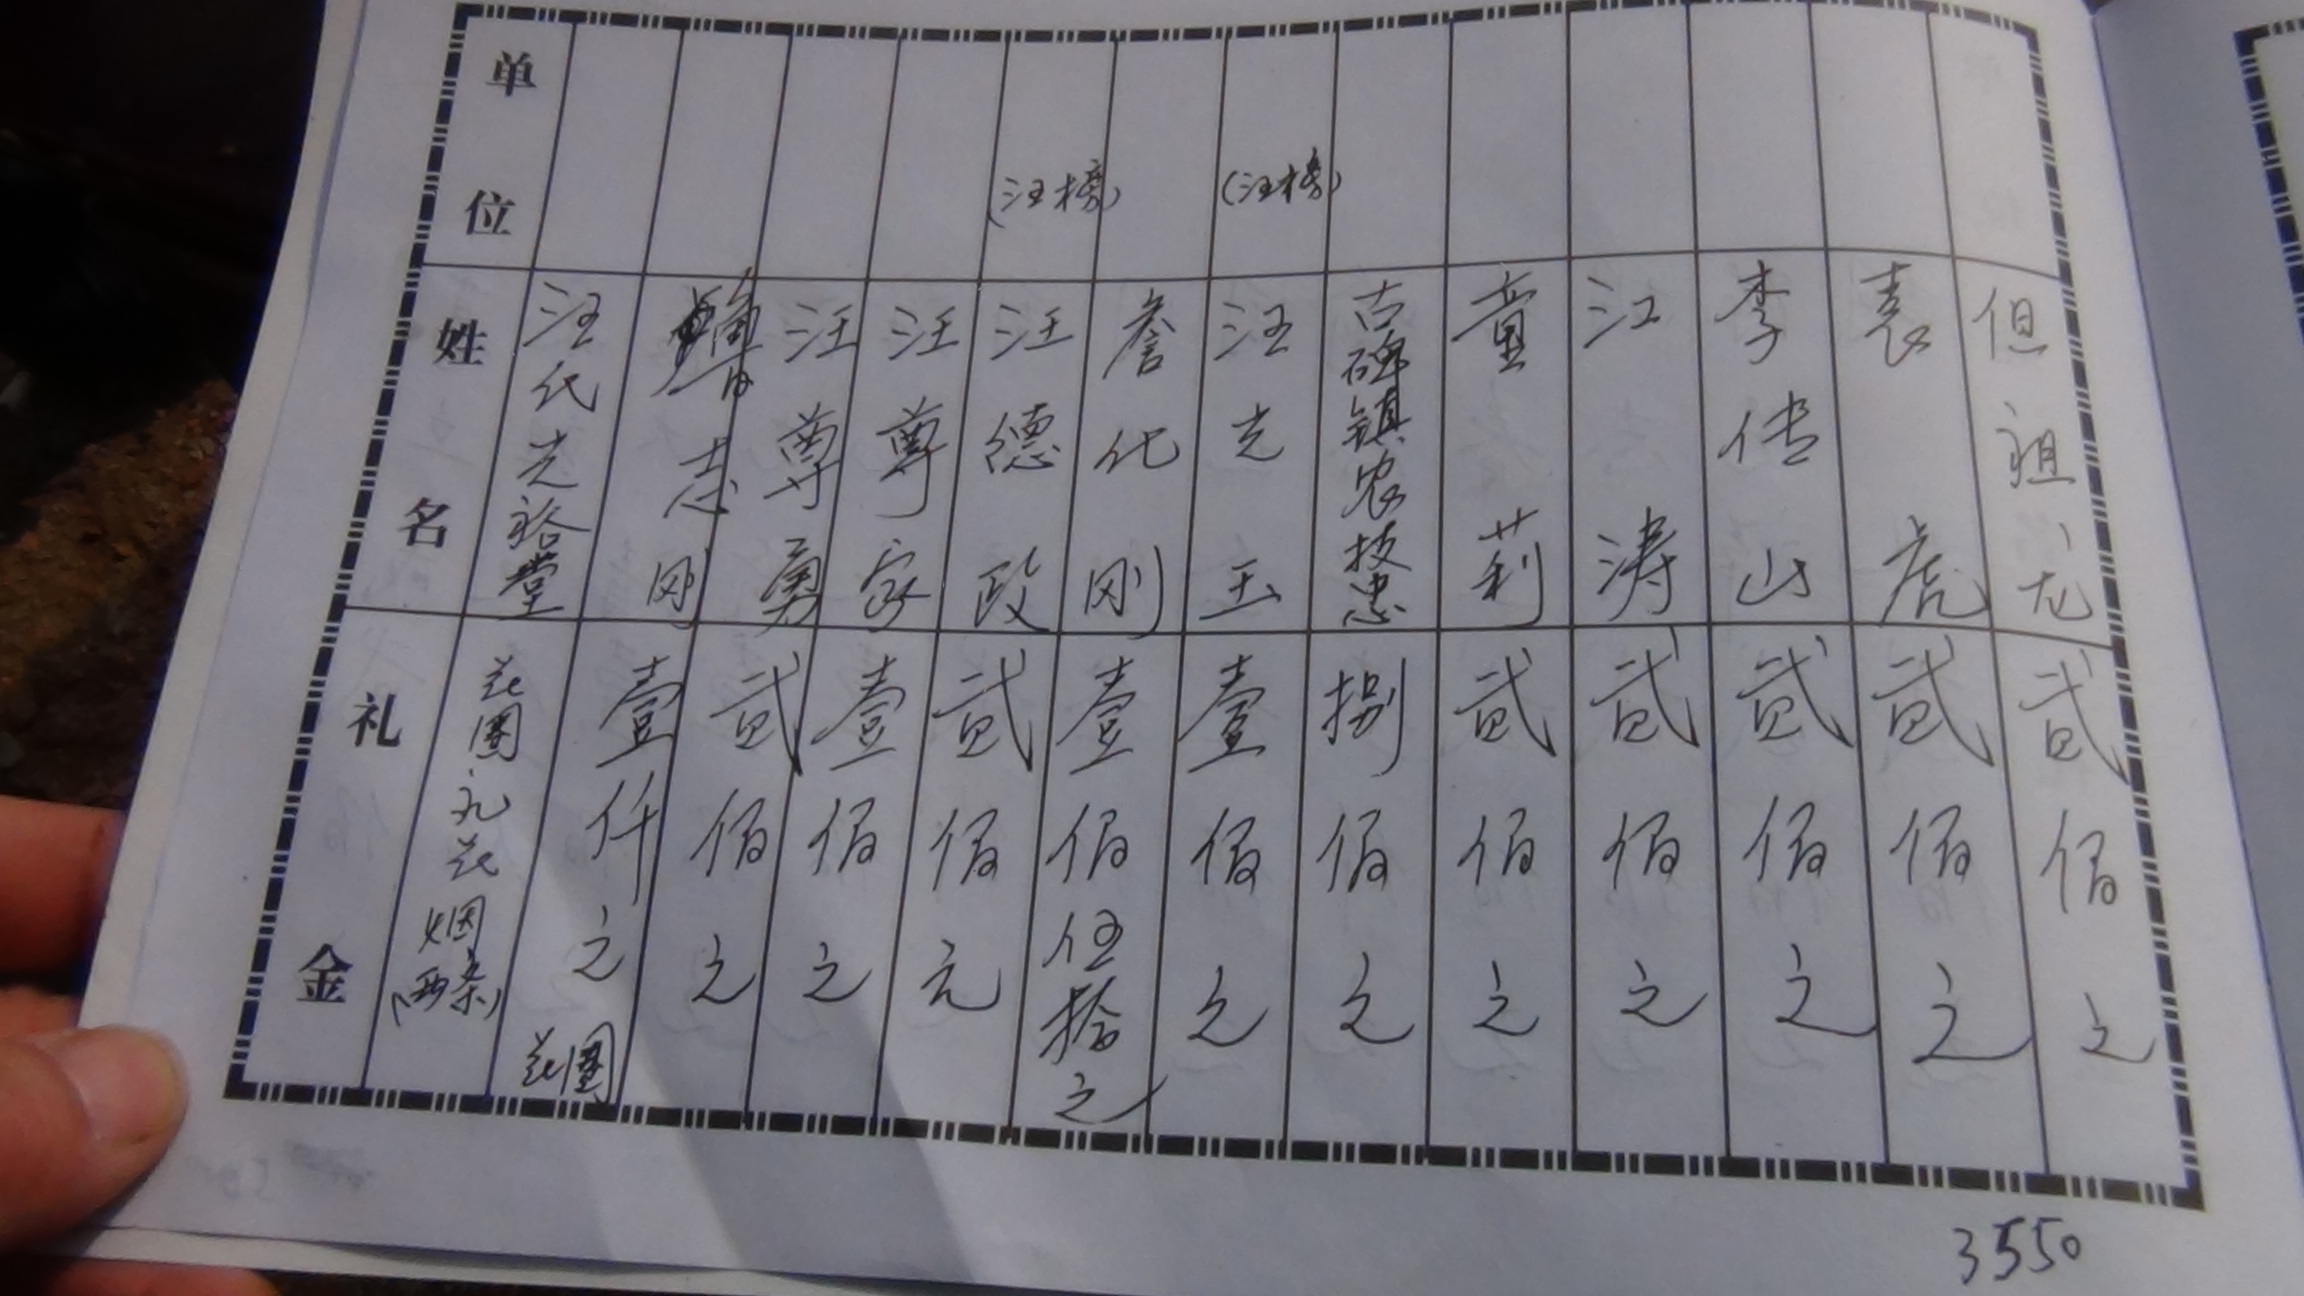 单位
姓名
礼金
汪代光裕堂
花圈礼花烟(两条)
志刚
壹仟元 花圈
汪尊勇
贰佰元
汪尊家
壹佰元
(汪榜)
汪德政
贰佰元
詹代刚
壹佰伍拾元
(汪榜)
汪志玉
壹佰元
古碑镇农技忠
捌佰元
童莉
贰佰元
江涛
贰佰元
李传山
贰佰元
袁虎
贰佰元
但祖龙
贰佰元
3550